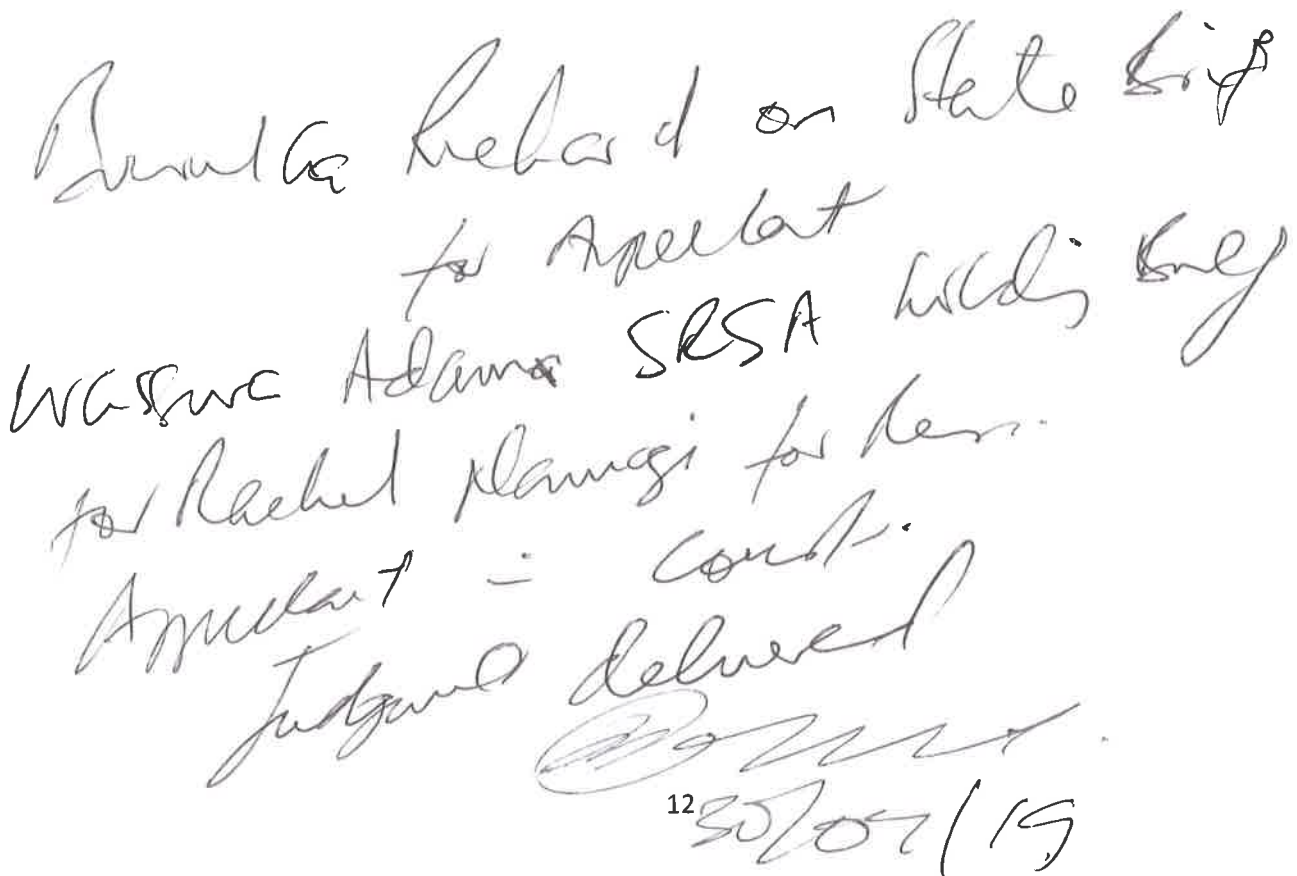 Richard on State Brief
for Appellant
Wasswa Adam SRSA holding Brief
for Rachel Namazzi for Resp.
Appellant in Court.
Judgment delivered
12
30/07/19